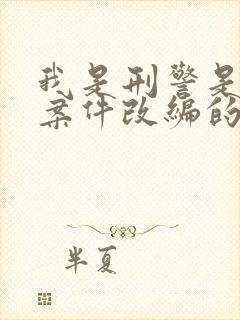 我是刑警是
案件改编的
半夏